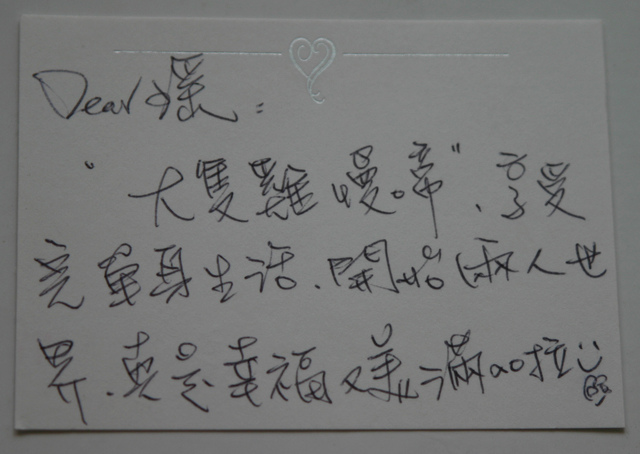 Dear 瑤：
"大隻雞慢啼"、享受
完單身生活、開始倆人世
界、真是幸福又美滿ㄉㄚ拉